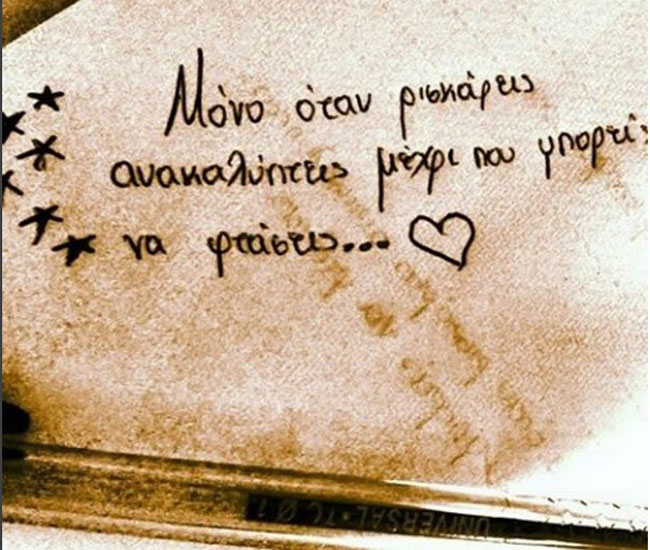 Μόνο όταν ρισκάρεις
ανακαλύπτεις μέχρι που μπορείς
να φτάσεις...
UNIVERSAL